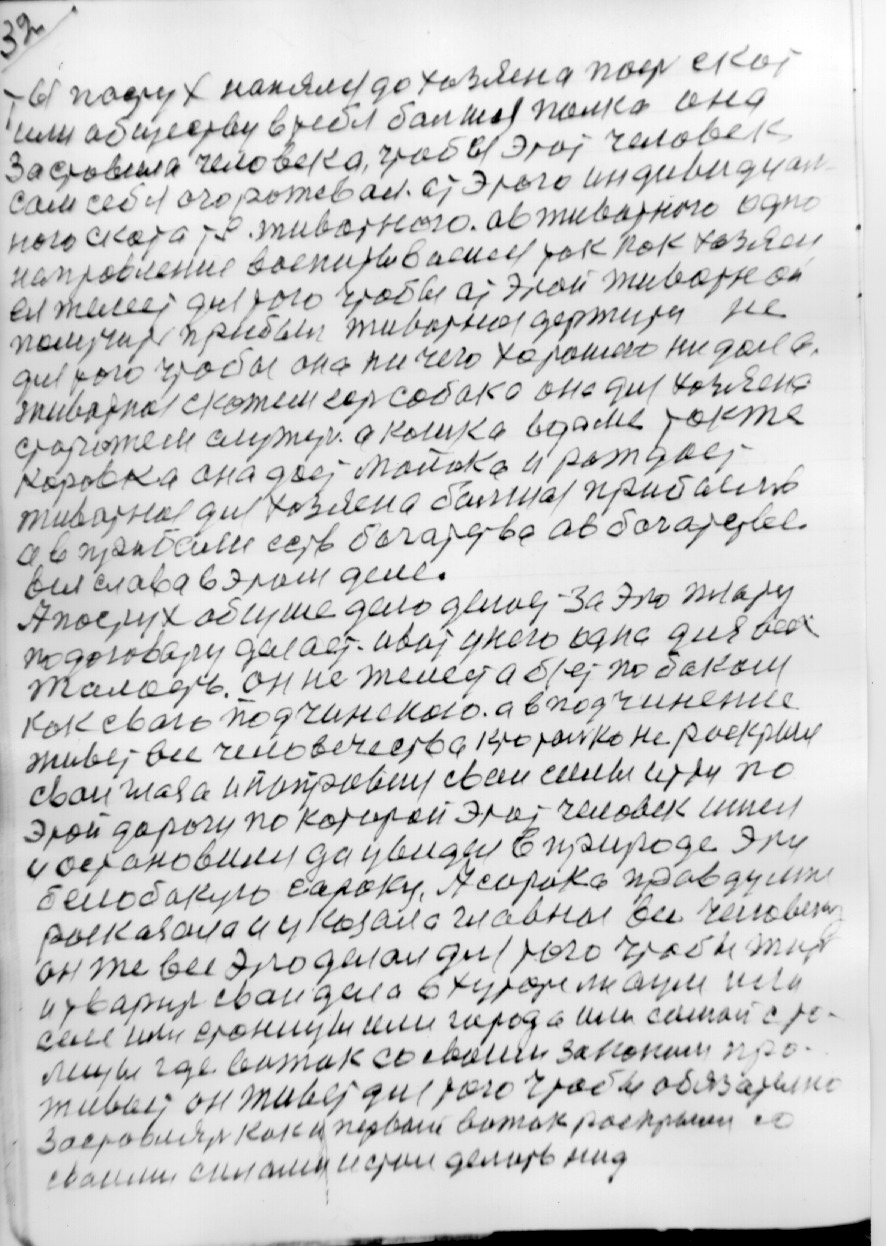 32
ты постух нанялся до хозяена пост скот
или обществу в тебя балшая палка она
заставила человека, чтобы этот человек
сам себя огорожевал. от этого индивидуал-
ного скота т.е. живатного. ав живатного одно
направление воспитываемся так как хозяен
ея жележт для того чтобы от этой живатной
получить прибыл живатное держится не
для того чтобы она ничего хорошего ни дала.
живатная скажем есть собака она для хозяена
сторожем служит. а кошка вдаме также
коровка она дает малако и рождает
живатное для хозяена балшая прибыль
а в прибыли есть богатства ав богатстве
вся слава в этом деле.
А постух общие дело делает за эту плату
подоговару делает. авот унего одна для всех
жалость. он не желеет а бьет по бокам
как сваго подчинского. а в подчинение
живет все человечества кто только не раскрыл
сваи глаза инаправил сваи силы итти по
этой дароги по которой этот человек шел
и остановился да увидел в природе эту
белобокую сароку. А сорока правду им
расказала и указала главная все человеку
он же все это делал для того чтобы жит
и тварит сваи дела в хуторе ли ауле или
селе или станицы или города или самой сто-
лицы где вожак со своим законом про-
живает он живет для того чтобы обязателно
заставлят как и первый вожак раскрылся со
своими силами и стал делать над